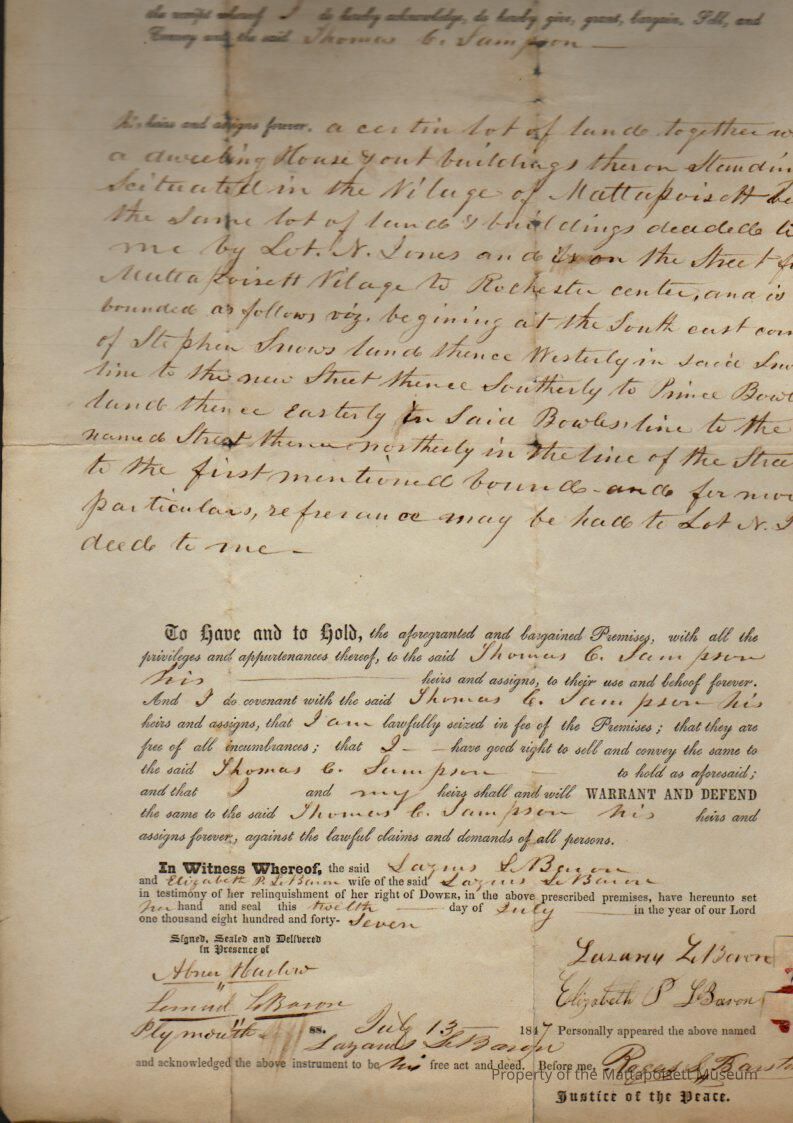 the receipt whereof I do hereby acknowledge, do hereby give, grant, bargain, Sell, and
Convey unto the said Thomas C. Sampson
his heirs and assigns forever. a certin lot of lande together
a dweeling House & out buildings theron Standin
Scituated in the Vilage of Mattapoisett be
the Same lot of lande & buildings deaded to
me by Lot. N. Jones and is on the Street
Mattapoisett Vilage to Rochester center, and is
bounded as follows viz. begining at the South east cor
of Stephen Snows land thence Westerly in said Sno
line to the new Street thence Southerly to Prince Bowl
land thence Easterly in Said Bowles line to the
named Street thence northerly in the line of the Stree
to the first mentioned bounds and for mor
particulars, refrerance may be had to Lot N. J
deed to me
To Have and to Hold, the aforegranted and bargained Premises, with all the
privileges and appurtenances thereof, to the said Thomas C. Sampson
his heirs and assigns, to their use and behoof forever.
And I do covenant with the said Thomas C. Sampson his
heirs and assigns, that I am lawfully seized in fee of the Premises; that they are
free of all incumbrances; that I have good right to sell and convey the same to
the said Thomas C. Sampson to hold as aforesaid;
and that I and my heirs shall and will WARRANT AND DEFEND
the same to the said Thomas C. Sampson his heirs and
assigns forever, against the lawful claims and demands of all persons.
In Witness Whereof, the said Lazarus LeBaron
and Elizabeth P. LeBaron wife of the said Lazarus LeBaron
in testimony of her relinquishment of her right of DOWER, in the above prescribed premises, have hereunto set
her hand and seal this twelth day of July in the year of our Lord
one thousand eight hundred and forty- Seven
Signed, Sealed and Delivered
in Presence of
Abner Harlow
Lemuel LeBaron
Lazarus LeBaron
Elizabeth P LeBaron
Plymouth ss. July 13 1847 Personally appeared the above named
Lazarus LeBaron
and acknowledged the above instrument to be his free act and deed. Before me,
Justice of the Peace.
Property of the Mattapoisett Museum